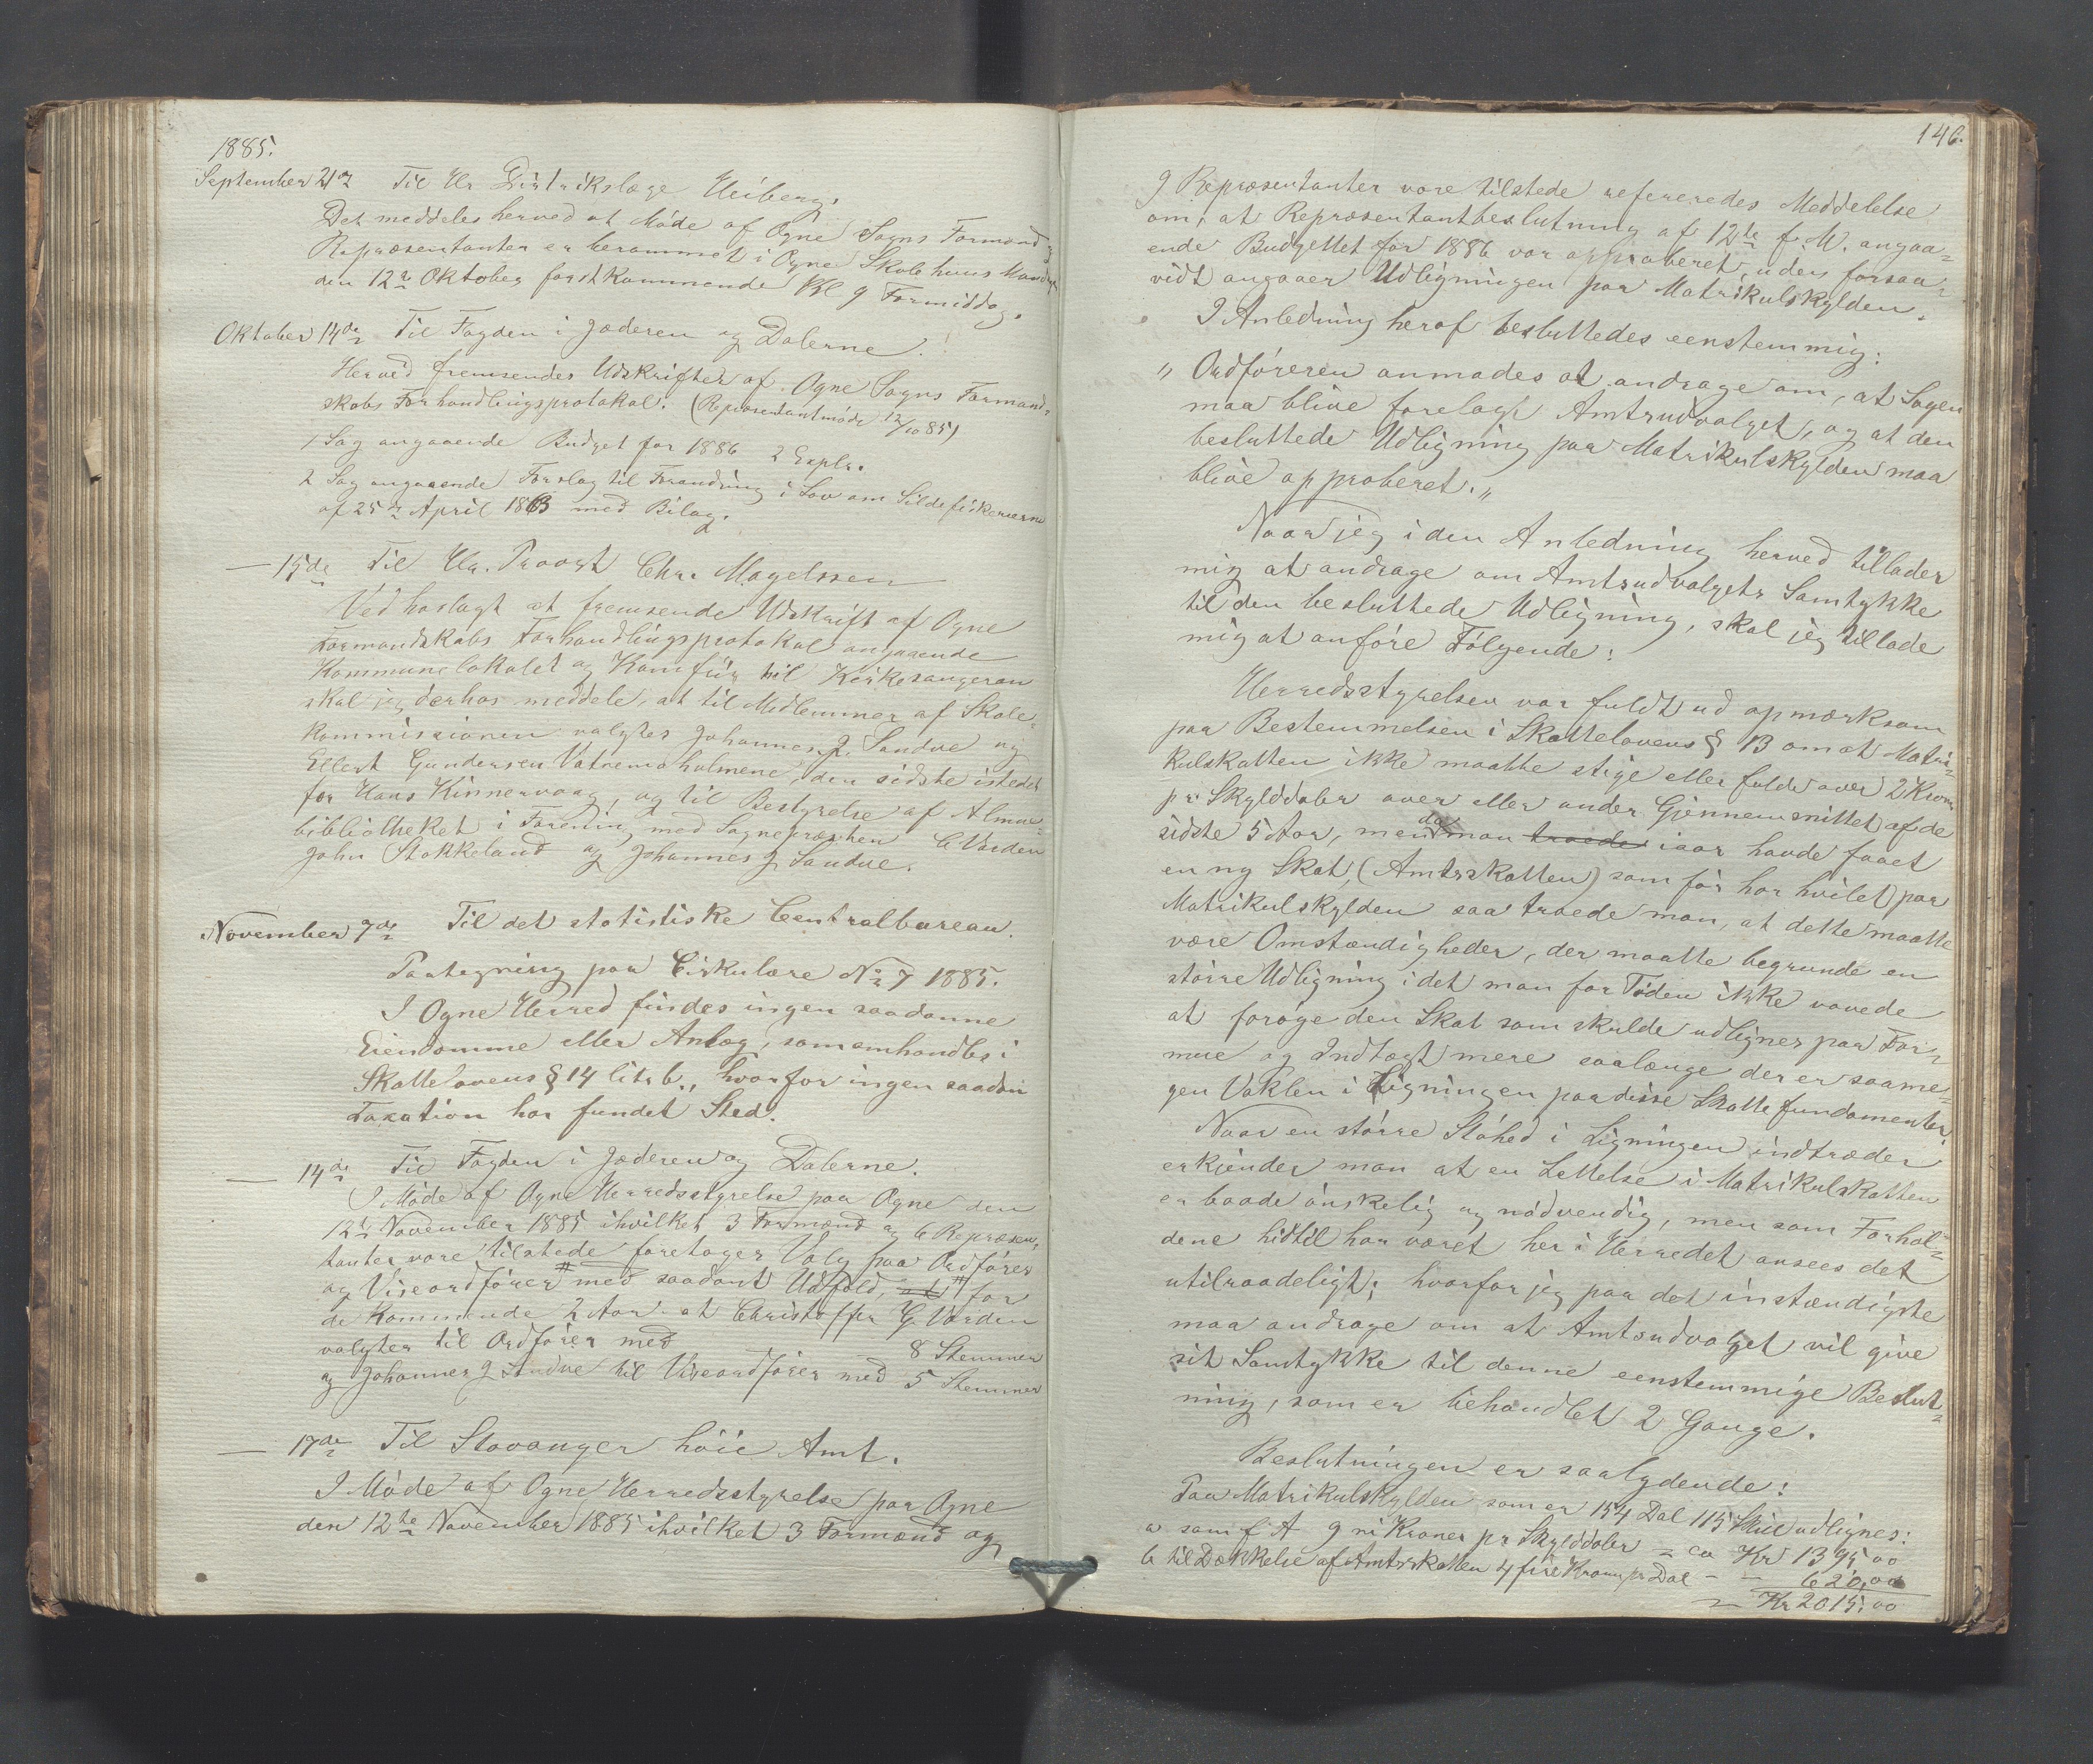 1885.
September 21de Til Hr Distrikslæge Heiberg.
Det meddeles herved at Møde af Ogne Sogns Formænd og
Repræsentanter er berammet i Ogne Skolehuus Mandag
den 12te Oktober førstkommende Kl 9 Formiddag.
Oktober 14de Til Fogden i Jæderen og Dalerne.
Herved fremsendes Udskrifter af Ogne Sogns Formand-
skabs Forhandlingsprotokol. (Repræsentantmøde 12/10 85)
1 Sag angaaende Budget for 1886 2 Explr.
2 Sag angaaende Forslag til Forandring i Lov om Sildefiskerierne
af 25de April 1863 med Bilag.
— 15de Til Hr. Provst Chr. Magelssen
Vedhoslagt at fremsende Udskrift af Ogne
Formandskabs Forhandlingsprotokol angaaende
Kommunelokalet og Komfür til Kirkesangeren
skal jeg derhos meddele, at til Medlemmer af Skole-
kommissionen valgtes Johannes J. Sandve og
Ellert Gundersen Vatnemoholmene, den sidste istedet
for Hans Kinnervaag, og til Bestyrelse af Almue-
bibliotheket i Forening med Sognepræsten C Varden
John Stokkeland og Johannes J Sandve.
November 7de Til det statistiske Centralbureau.
Paategning paa Cirkulære No 7 1885.
I Ogne Herred findes ingen saadanne
Eiendomme eller Anlæg, som omhandles i
Skattelovens § 14 litr b., hvorfor ingen saadan
Taxation har fundet Sted.
— 14de Til Fogden i Jæderen og Dalerne.
I Møde af Ogne Herredsstyrelse paa Ogne den
12te November 1885 ihvilket 3 Formænd og 6 Repræsen-
tanter vare tilstede foretoges Valg paa Ordfører
og Viseordfører # med saadant Udfald, at # for
de kommende 2 Aar at Christoffer G Varden
valgtes til Ordfører med 8 Stemmer
og Johannes J Sandve til Viseordfører med 5 Stemmer
— 17de Til Stavanger høie Amt.
I Møde af Ogne Herredsstyrelse paa Ogne
den 12te November 1885 ihvilket 3 Formænd og
146.
9 Repræsentanter vare tilstede refereredes Meddelelse
om, at Repræsentantbeslutning af 12te f. M. angaa-
ende Budgettet for 1886 var approberet, uden forsaa-
vidt angaaer Udligningen paa Matrikulskylden.
I Anledning heraf besluttedes eenstemmig:
" Ordføreren anmodes at andrage om, at Sagen
maa blive forelagt Amtsudvalget, og at den
besluttede Udligning paa Matrikulskylden maa
blive approberet. "
Naar jeg i den Anledning herved tillader
mig at andrage om Amtsudvalgets Samtykke
til den besluttede Udligning, skal jeg tillade
mig at anføre Følgende:
Herredsstyrelsen var fuldt ud opmærksom
paa Bestemmelsen i Skattelovens § 13 om at Matri-
kulskatten ikke maatte stige eller falde over 2 Kroner
pr Skylddaler over eller under Gjennemsnittet af de
sidste 5 Aar, men da man troede iaar havde faaet
en ny Skat, (Amtsskatten) som før har hvilet paa
Matrikulskylden saa troede man, at dette maatte
være Omstændigheder, der maatte begrunde en
større Udligning idet man for Tiden ikke vovede
at forøge den Skat som skulde udlignes paa For-
mue og Indtægt mere saalænge der er saa me-
gen Vaklen i Ligningen paa disse Skattefundamenter.
Naar en større Støhed i Ligningen indtræder
erkjender man at en Lettelse i Matrikulskatten
er baade ønskelig og nødvendig, men som Forhol-
dene hidtil har været her i Herredet ansees det
utilraadeligt; hvorfor jeg paa det instændigste
maa andrage om at Amtsudvalget vil give
sit Samtykke til denne eenstemmige Beslut-
ning, som er behandlet 2 Gange.
Beslutningen er saalydende:
Paa Matrikulskylden som er 154 Dal 115 Skill udlignes:
a som f A 9 ni Kroner pr Skylddaler = ca Kr 1395,00
b til Dækkelse af Amtsskatten 4 fire Kroner pr Dal - — 620,00
= Kr 2015,00